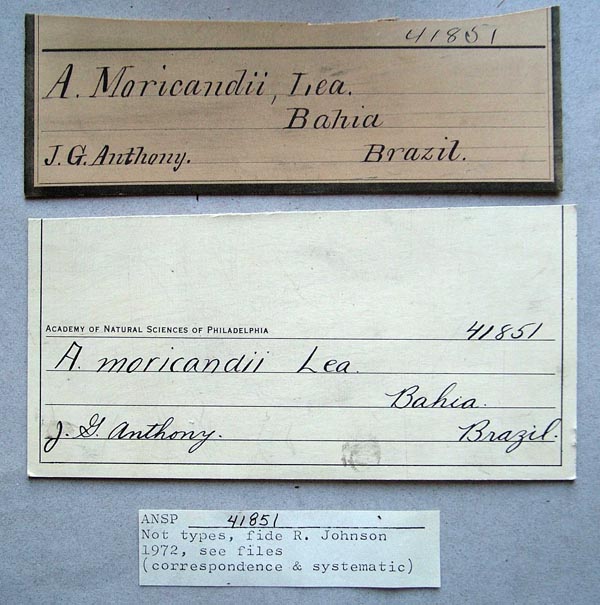 41851
A. Moricandii, Lea.
Bahia
J.G. Anthony. Brazil.
ACADEMY OF NATURAL SCIENCES OF PHILADELPHIA 41851
A. moricandii Lea.
Bahia.
J. G. Anthony. Brazil.
ANSP 41851
Not types, fide R. Johnson
1972, see files
(correspondence & systematic)